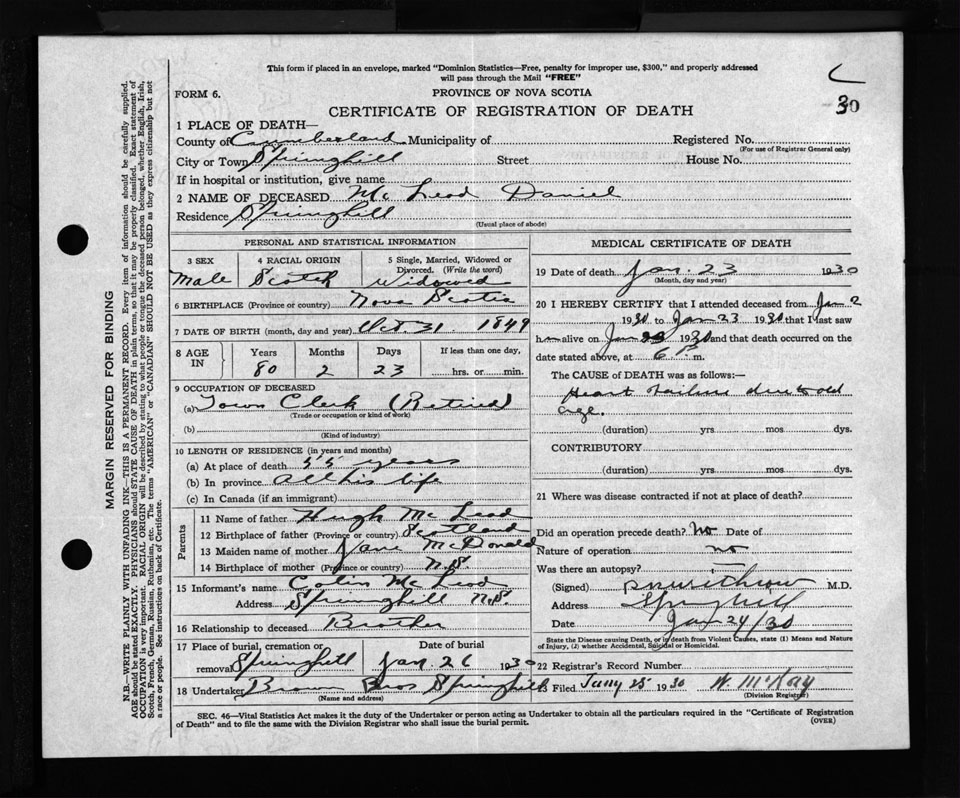 This form if placed in an envelope, marked "Dominion Statistics—Free, penalty for improper use, $300," and properly addressed
will pass through the Mail "FREE"
FORM 6.
PROVINCE OF NOVA SCOTIA
CERTIFICATE OF REGISTRATION OF DEATH
30
1 PLACE OF DEATH—
County of Cumberland Municipality of Registered No.
(For use of Registrar General only)
City or Town Springhill Street House No.
If in hospital or institution, give name
2 NAME OF DECEASED Mc Leod Daniel
Residence Springhill
(Usual place of abode)
PERSONAL AND STATISTICAL INFORMATION
3 SEX 4 RACIAL ORIGIN 5 Single, Married, Widowed or Divorced. (Write the word)
Male Scotch Widowed
6 BIRTHPLACE (Province or country) Nova Scotia
7 DATE OF BIRTH (month, day and year) Oct. 31. 1849
8 AGE IN Years Months Days If less than one day,
80 2 23 hrs. or min.
9 OCCUPATION OF DECEASED
(a) Town Clerk (Retired)
(Trade or occupation or kind of work)
(b)
(Kind of industry)
10 LENGTH OF RESIDENCE (in years and months)
(a) At place of death 55 years
(b) In province all his life
(c) In Canada (if an immigrant)
Parents
11 Name of father Hugh Mc Leod
12 Birthplace of father (Province or country) Scotland
13 Maiden name of mother Jane McDonald
14 Birthplace of mother (Province or country) N.S.
15 Informant's name Colin Mc Leod
Address Springhill N.S.
16 Relationship to deceased Brother
17 Place of burial, cremation or removal Date of burial
Springhill Jan 26 1930
18 Undertaker Brown Bros Springhill
(Name and address)
MEDICAL CERTIFICATE OF DEATH
19 Date of death Jan. 23 1930
(Month, day and year)
20 I HEREBY CERTIFY that I attended deceased from Jan 2
1930 to Jan 23 1930 that I last saw
him alive on Jan 1930 and that death occurred on the
date stated above, at 6 P m.
The CAUSE of DEATH was as follows:—
Heart Failure due to old
age.
(duration) yrs mos dys.
CONTRIBUTORY
(duration) yrs mos dys.
21 Where was disease contracted if not at place of death?
Did an operation precede death? No Date of
Nature of operation no
Was there an autopsy?
(Signed) M.D.
Address Springhill
Date Jan 24/30
State the Disease causing Death, or in death from Violent Causes, state (1) Means and Nature
of Injury, (2) whether Accidental, Suicidal or Homicidal.
22 Registrar's Record Number
23 Filed Jany 25 1930 W. McKay
(Division Registrar)
SEC. 46—Vital Statistics Act makes it the duty of the Undertaker or person acting as Undertaker to obtain all the particulars required in the "Certificate of Registration
of Death" and to file the same with the Division Registrar who shall issue the burial permit.
(OVER)
MARGIN RESERVED FOR BINDING
N.B.—WRITE PLAINLY WITH UNFADING INK—THIS IS A PERMANENT RECORD. Every item of information should be carefully supplied.
AGE should be stated EXACTLY. PHYSICIANS should STATE CAUSE OF DEATH in plain terms, so that it may be properly classified. Exact statement of
OCCUPATION is very important. RACIAL ORIGIN will be described by stating to what people or tongue the deceased person belonged, whether English, Irish,
Scotch, French, German, Russian, Ruthenian, etc. The terms "AMERICAN" or "CANADIAN" SHOULD NOT BE USED as they express citizenship but not
a race or people. See instructions on back of Certificate.